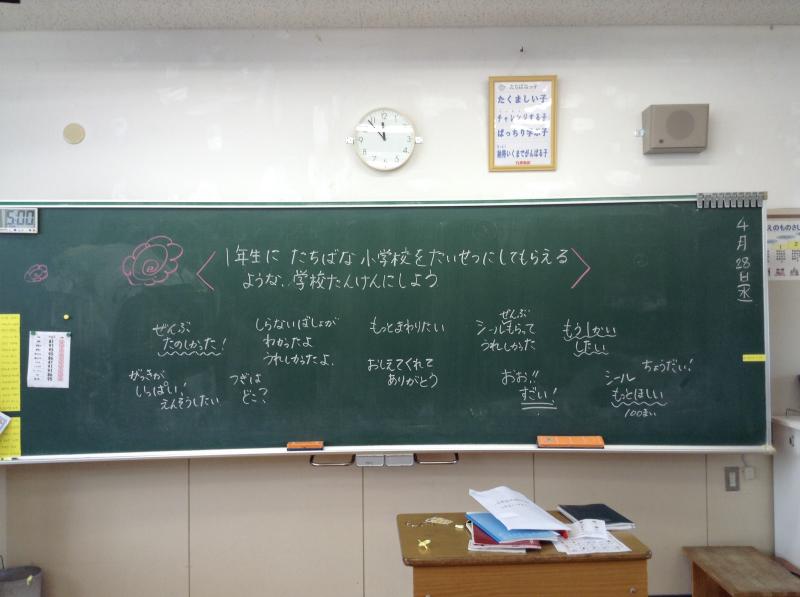 たちばなっ子
たくましい子
チャレンジする子
ばっちり学ぶ子
納得いくまでがんばる子
5:00
4月28日(水)
1年生に たちばな小学校をたいせつにしてもらえる
ような、学校たんけんにしよう
ぜんぶ
たのしかった!
しらないばしょが
わかったよ
うれしかったよ。
もっとまわりたい
ぜんぶ
シールもらって
うれしかった
もう1かい
したい
がっきが
いっぱい!
えんそうしたい
つぎは
どこ?
おしえてくれて
ありがとう
おお!!
すごい!
ちょうだい!
シール
もっとほしい
100まい